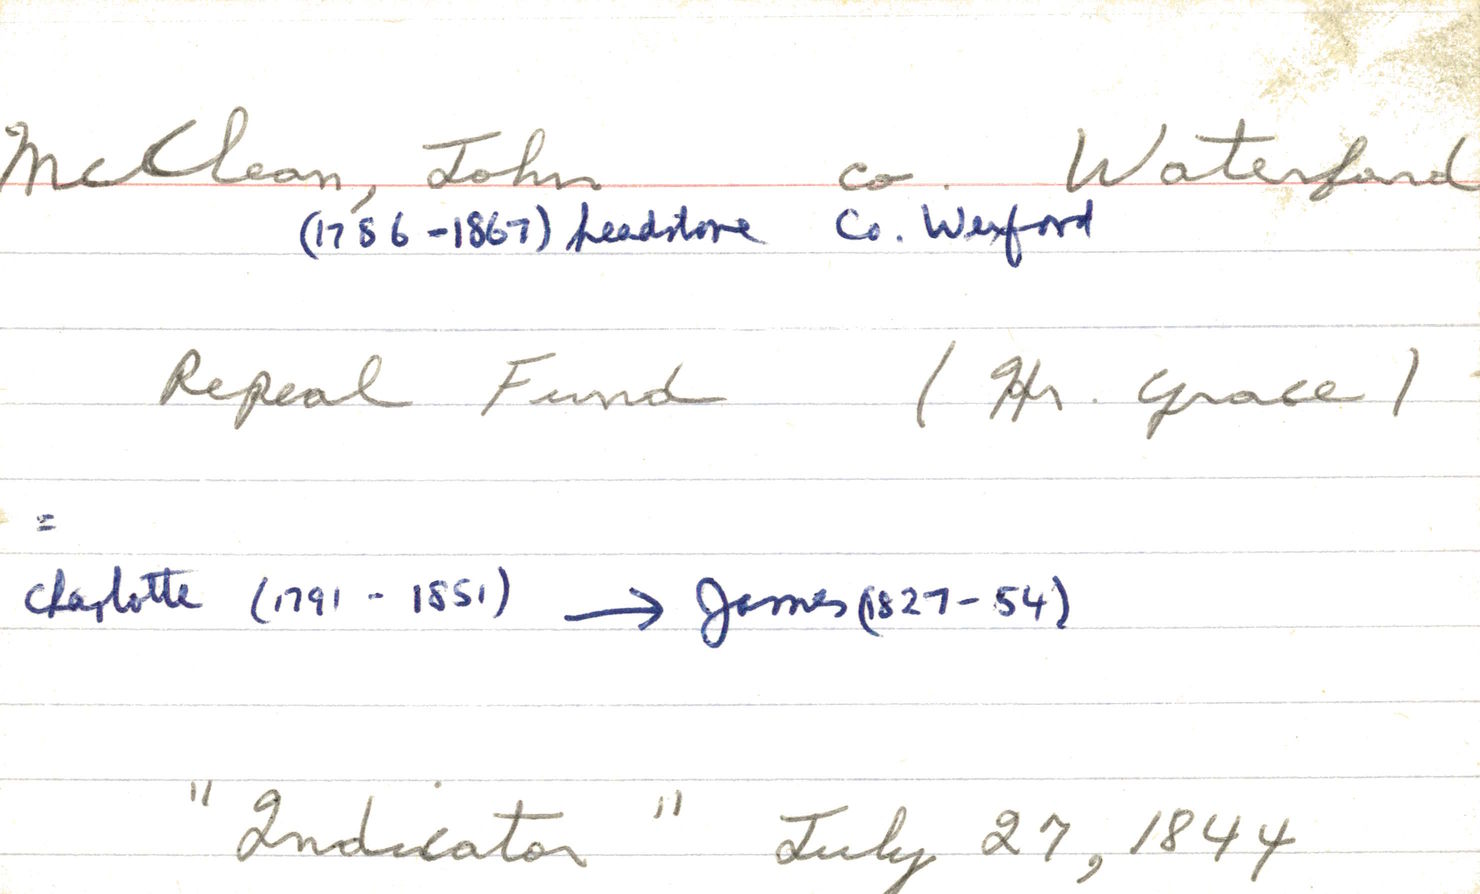 McClean, John co. Waterford
(1786-1867) headstone Co. Wexford
Repeal Fund (Hr. Grace)
=
Charlotte (1791 - 1851) → James (1827-54)
"Indicator" July 27, 1844